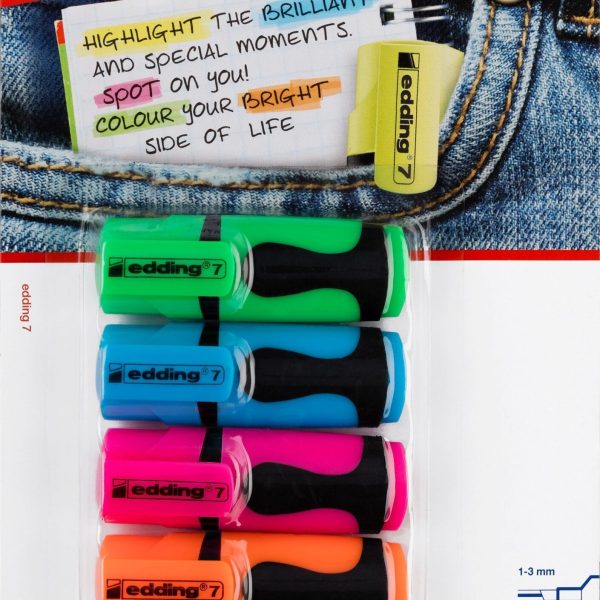 HIGHLIGHT THE BRILLIANT
AND SPECIAL MOMENTS.
SPOT ON YOU!
COLOUR YOUR BRIGHT
SIDE OF LIFE
edding® 7
edding® 7
edding 7
edding® 7
edding 7
edding® 7
1-3 mm